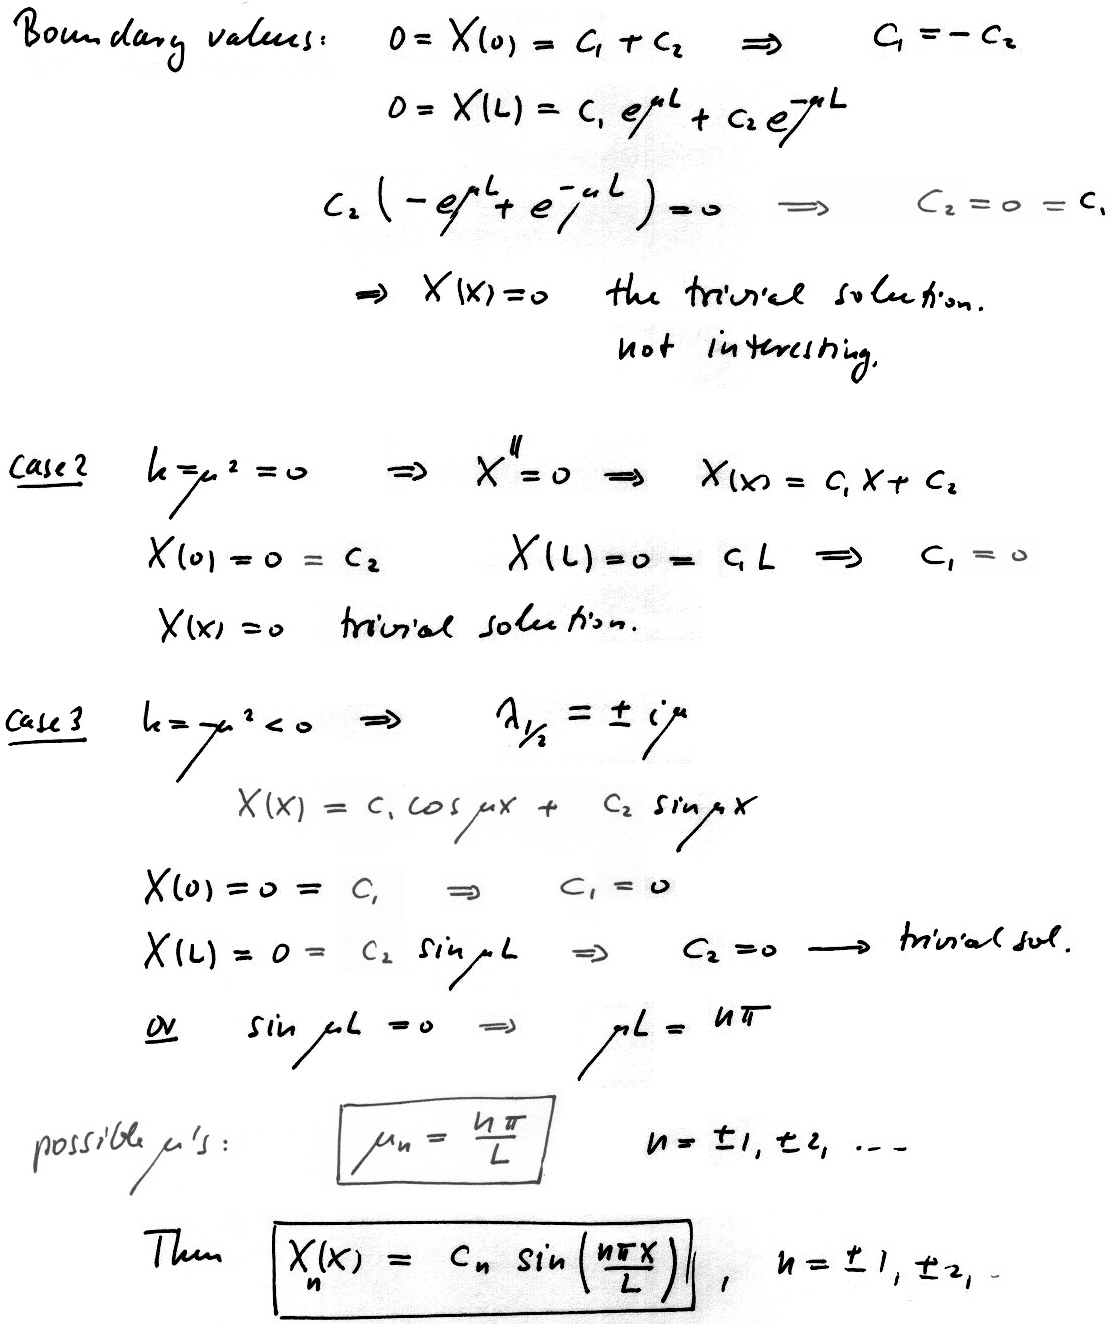 Boundary values: 0 = X(0) = C₁ + C₂ ⇒ C₁ = -C₂
0 = X(L) = C₁ e^{μL} + C₂ e^{-μL}
C₂ (-e^{μL} + e^{-μL}) = 0 ⇒ C₂ = 0 = C₁
⇒ X(x) = 0 the trivial solution.
not interesting.
Case 2 k = μ² = 0 ⇒ X'' = 0 ⇒ X(x) = C₁ x + C₂
X(0) = 0 = C₂ X(L) = 0 = C₁ L ⇒ C₁ = 0
X(x) = 0 trivial solution.
Case 3 k = -μ² < 0 ⇒ λ_{1/2} = ± iμ
X(x) = C₁ cos μx + C₂ sin μx
X(0) = 0 = C₁ ⇒ C₁ = 0
X(L) = 0 = C₂ sin μL ⇒ C₂ = 0 → trivial sol.
or sin μL = 0 ⇒ μL = nπ
possible μ's: μₙ = nπ/L n = ±1, ±2, ...
Then Xₙ(x) = Cₙ sin(nπx/L), n = ±1, ±2, .